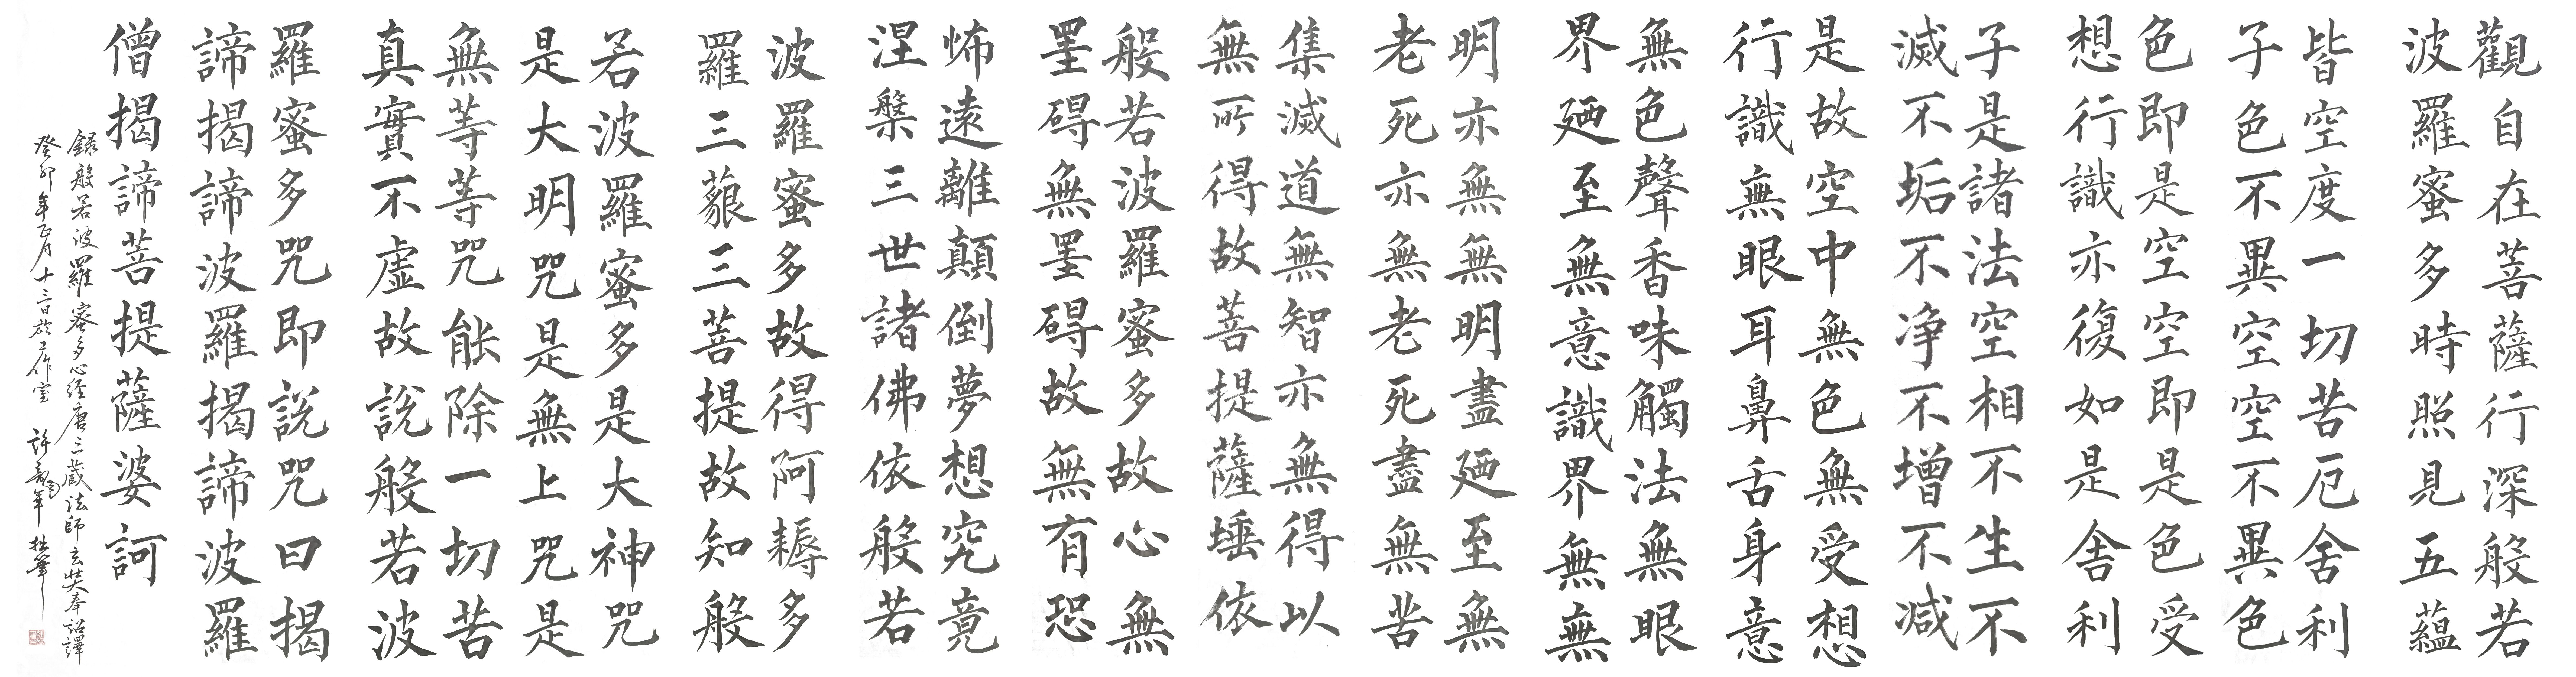 觀自在菩薩行深般若
波羅蜜多時照見五蘊
皆空度一切苦厄舍利
子色不異空空不異色
色即是空空即是色受
想行識亦復如是舍利
子是諸法空相不生不
滅不垢不净不增不減
是故空中無色無受想
行識無眼耳鼻舌身意
無色聲香味觸法無眼
界廼至無意識界無無
明亦無無明盡廼至無
老死亦無老死盡無苦
集滅道無智亦無得以
無所得故菩提薩埵依
般若波羅蜜多故心無
罣碍無罣碍故無有恐
怖遠離顛倒夢想究竟
涅槃三世諸佛依般若
波羅蜜多故得阿耨多
羅三藐三菩提故知般
若波羅蜜多是大神咒
是大明咒是無上咒是
無等等咒能除一切苦
真實不虛故說般若波
羅蜜多咒即說咒曰揭
諦揭諦波羅揭諦波羅
僧揭諦菩提薩婆訶
録般若波羅蜜多心經唐三藏法師玄奘奉詔譯
癸卯年正月十二日於工作室 許龍年 拙筆